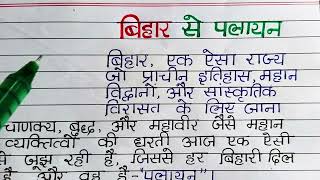 बिहार से पलायन
बिहार, एक ऐसा राज्य
जो प्राचीन इतिहास, महान
विद्वानों, और सांस्कृतिक
विरासत के लिए जाना
चाणक्य, बुद्ध, और महावीर जैसे महान
व्यक्तित्वों की धरती आज एक ऐसी
से जूझ रही है, जिससे हर बिहारी दिल
है और वह है-"पलायन"।